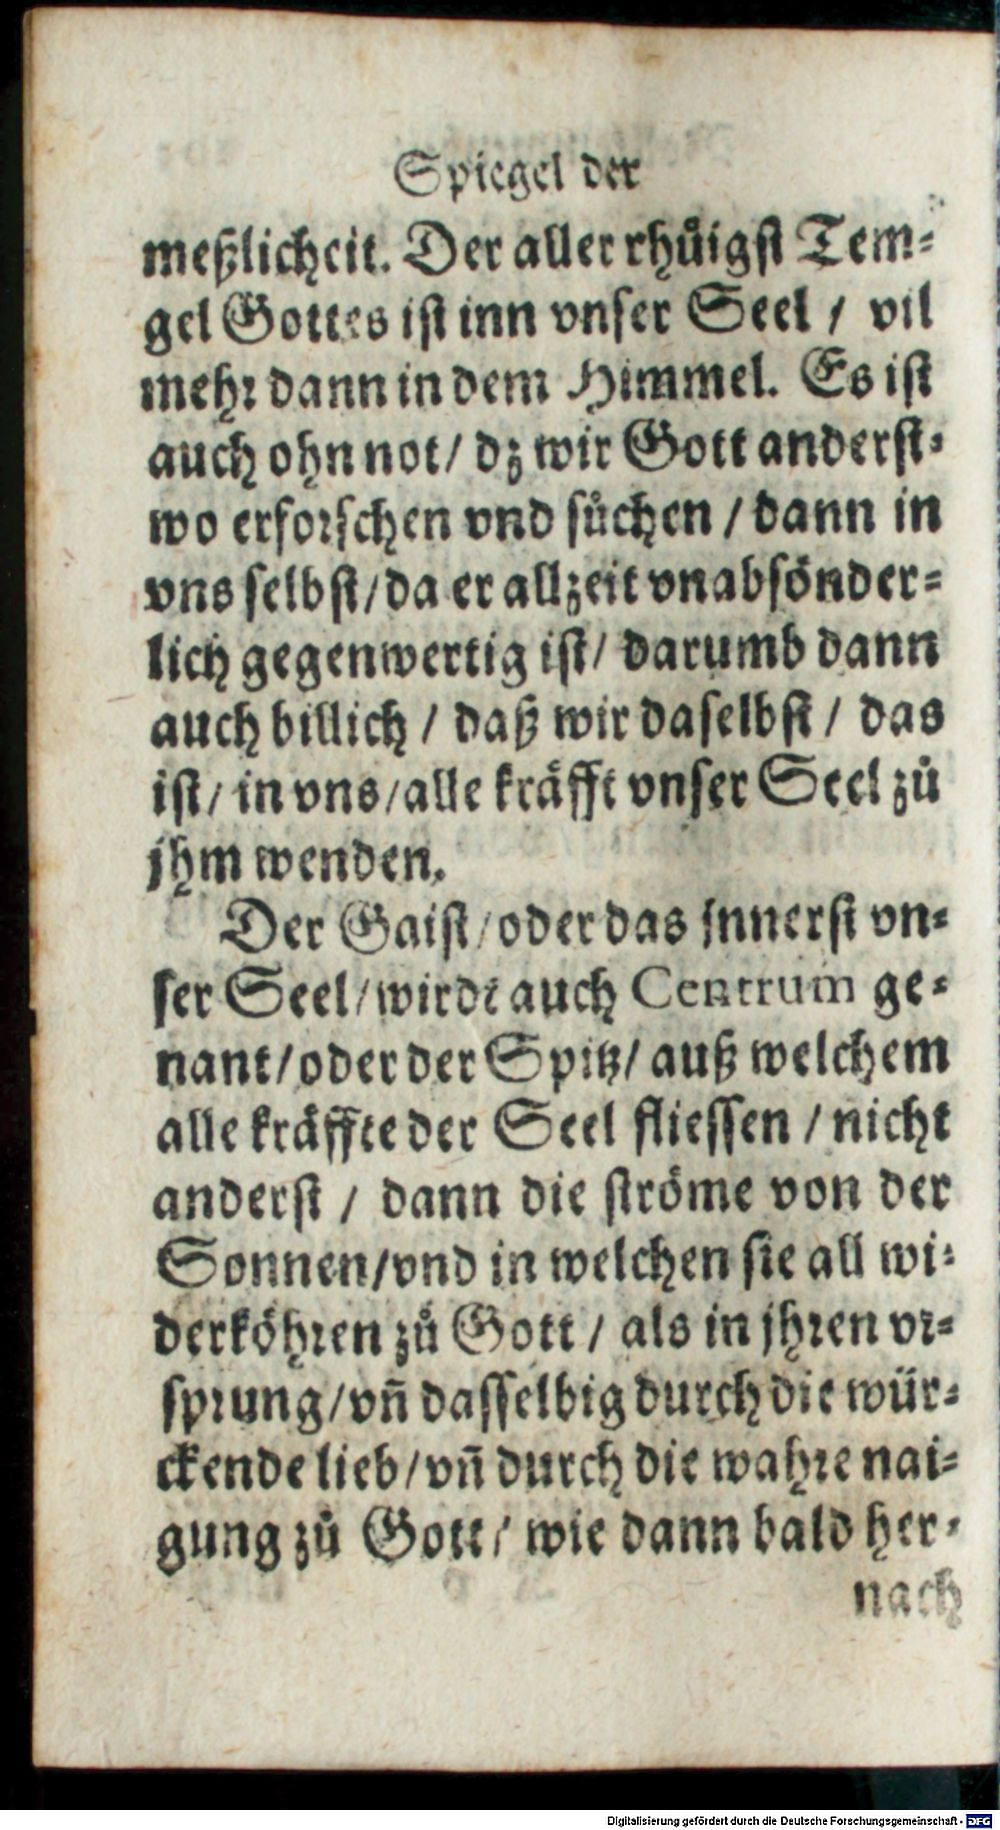 Spiegel der
meßlicheit. Der aller rhůigst Tem-
gel Gottes ist inn vnser Seel / vil
mehr dann in dem Himmel. Es ist
auch ohn not / dz wir Gott anderst-
wo erforschen vnd sůchen / dann in
vns selbst / da er allzeit vnabsönder-
lich gegenwertig ist / darumb dann
auch billich / daß wir daselbst / das
ist / in vns / alle kräfft vnser Seel zů
jhm wenden.
Der Gaist / oder das jnnerst vn-
ser Seel / wirdt auch Centrum ge-
nant / oder der Spitz / auß welchem
alle kräffte der Seel fliessen / nicht
anderst / dann die ströme von der
Sonnen / vnd in welchen sie all wi-
derköhren zů Gott / als in jhren vr-
sprung / vn̄ dasselbig durch die wür-
ckende lieb / vn̄ durch die wahre nai-
gung zů Gott / wie dann bald her-
nach
Digitalisierung gefördert durch die Deutsche Forschungsgemeinschaft - DFG